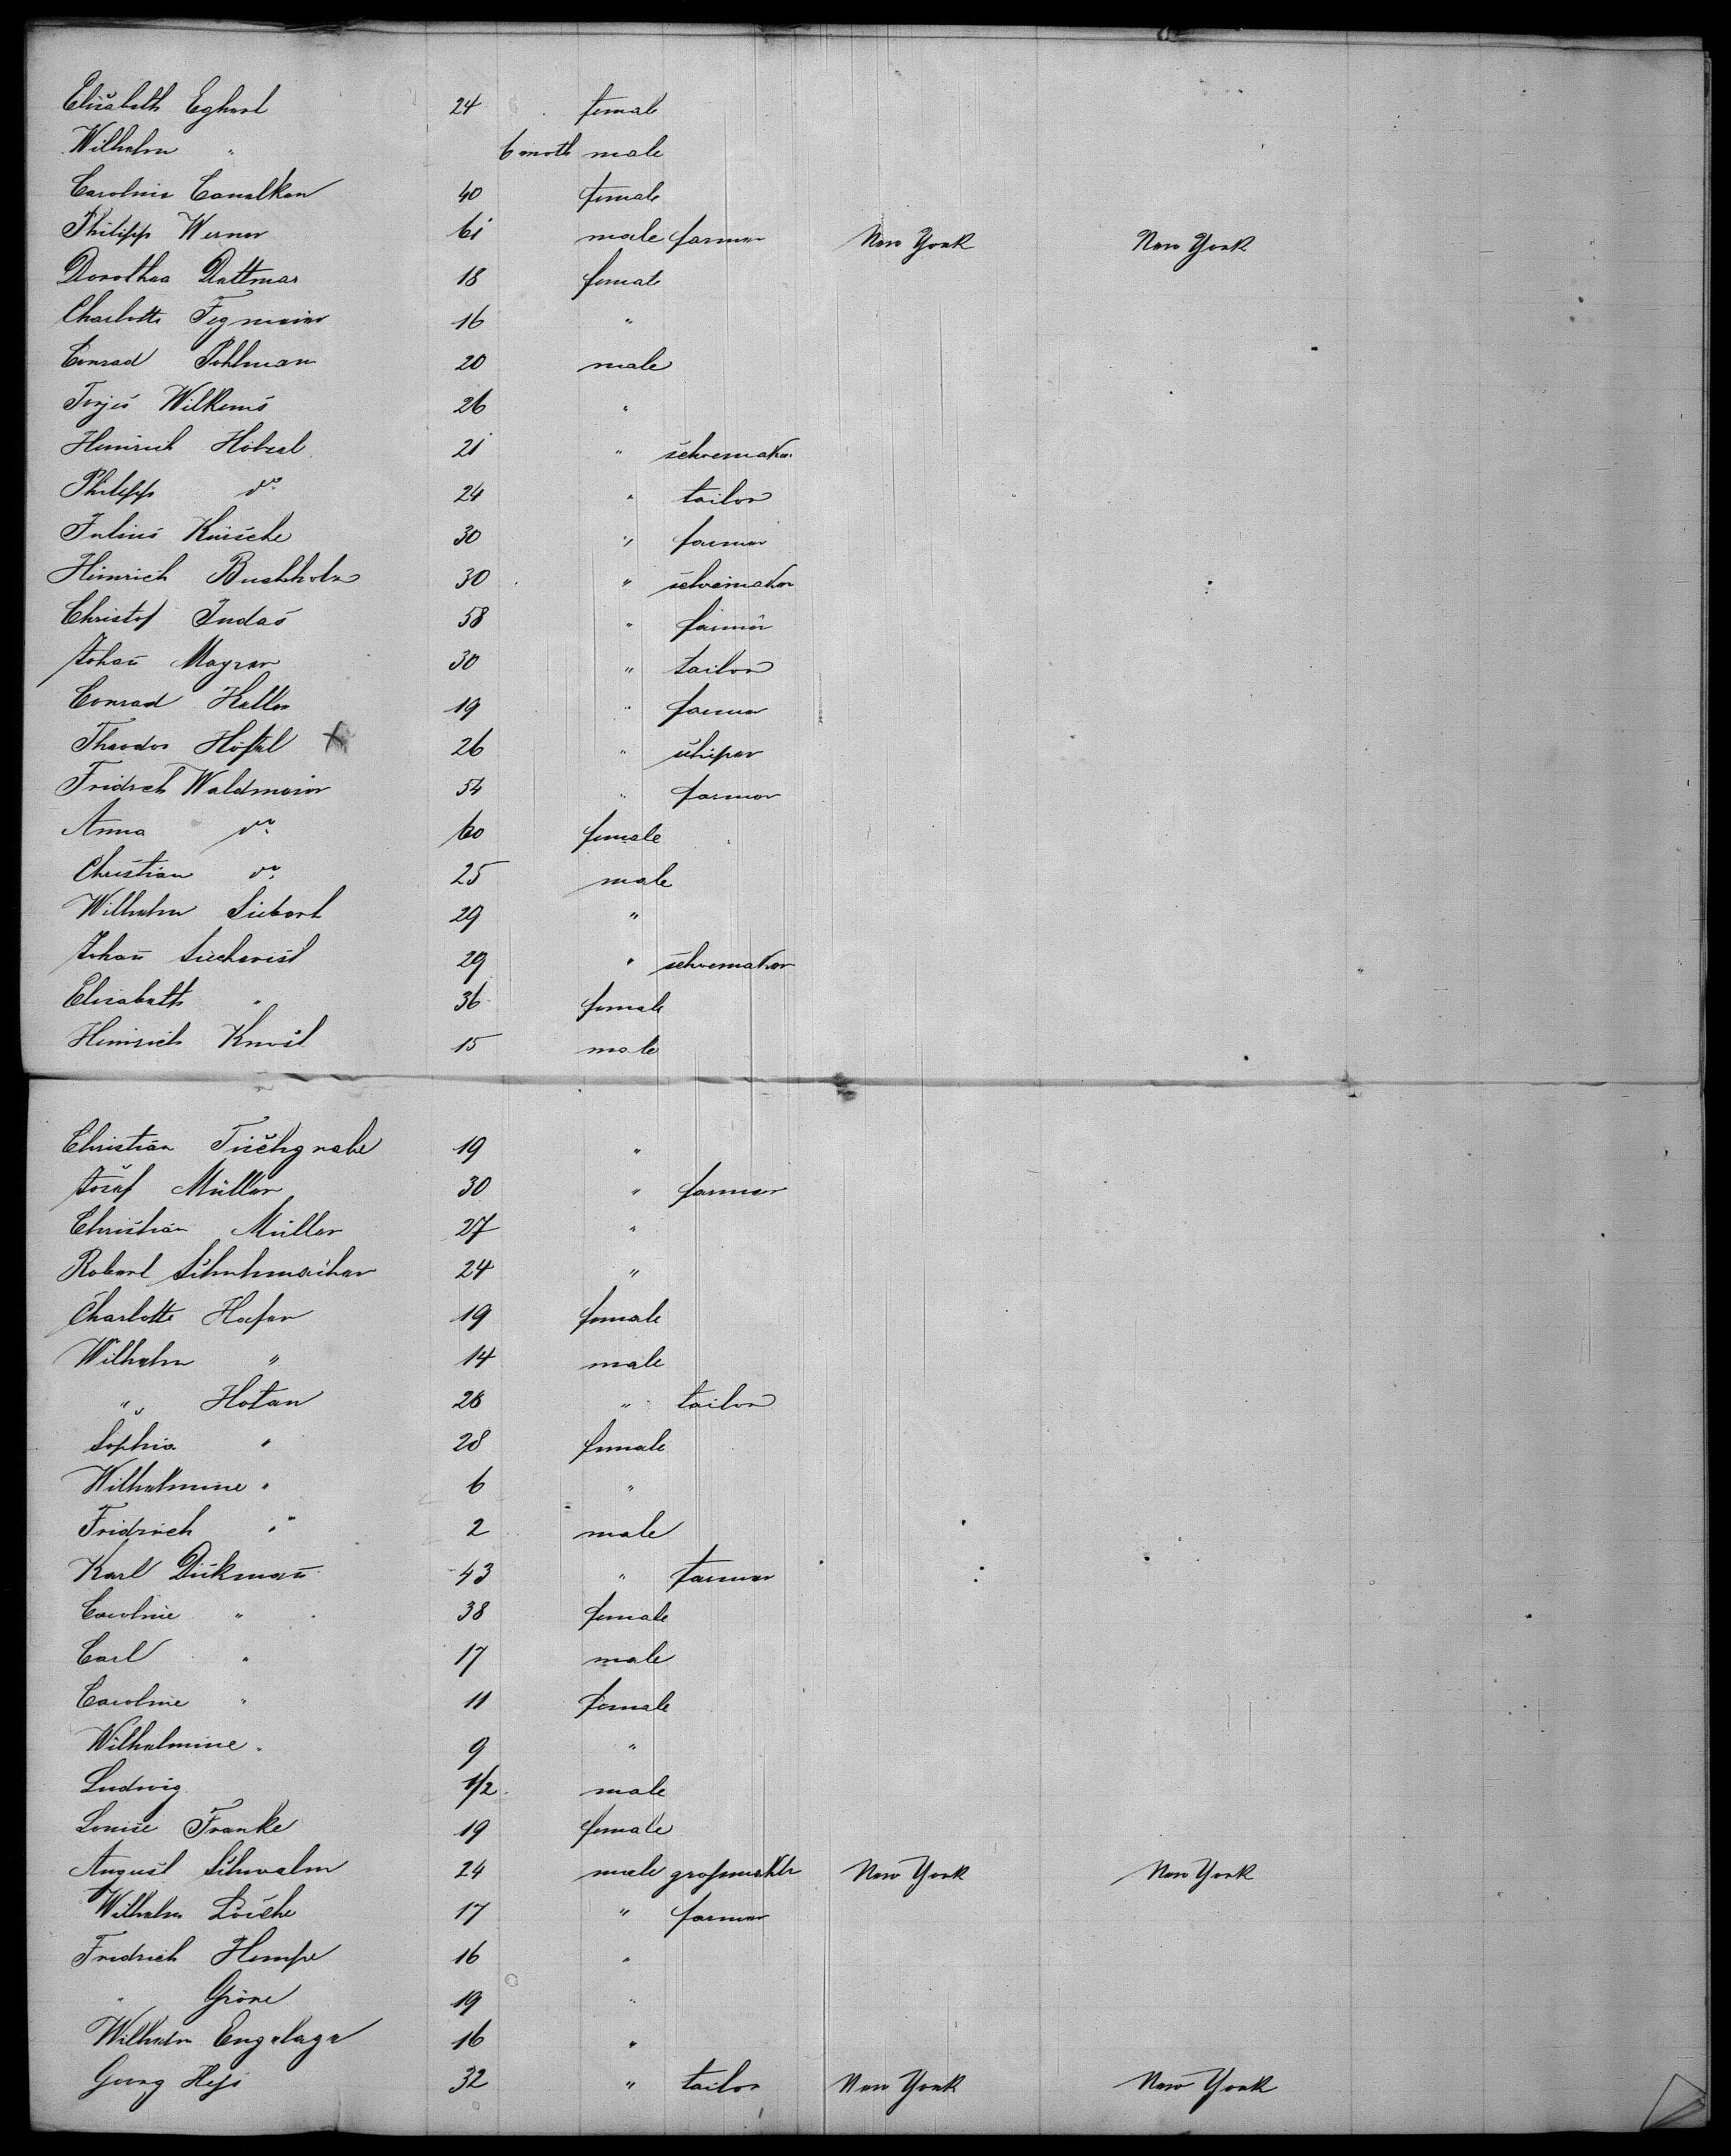 Elisabeth Eghert 24 female
Wilhelm " 6 month male
Carolina 40 female
Philipp Werner 61 male farmer New York New York
Dorothea Dettmar 18 female
Charlotte Tegmeier 16 "
Conrad Pohlman 20 male
Wilkens 26 "
Heinrich 21 " schoemaker
Philipp do 24 " tailor
Julius Kürsche 30 " farmer
Heinrich Buchholz 30 " schoemaker
Christof Judas 58 " farmer
Johañ Mayrer 30 " tailor
Conrad Keller 19 " farmer
Theodor 26 "
Fridrch Waldmeier 54 " farmer
Anna do 60 female
Christian do 25 male
Wilhelm Siebert 29 "
Johañ 29 " schoemaker
Elisabeth " 36 female
Heinrich Knust 15 male
Christian Tischgrabe 19 "
Josef Müller 30 " farmer
Christian Müller 27 "
Robert Schuhmacher 24 "
Charlotte Hafer 19 female
Wilhelm " 14 male
" Hotan 26 " tailor
Sophia " 28 female
Wilhelmine " 6 "
Fridrich " 2 male
Karl Dickmañ 43 " farmer
Caroline " 38 female
Carl " 17 male
Caroline " 11 female
Wilhelmine " 9 "
Ludwig 1/2 male
Louise Franke 19 female
August Schwalm 24 male New York New York
Wilhelm Lösche 17 " farmer
Fridrich Hempe 16 "
" Gröne 19 "
Wilhelm Engelage 16 "
Georg Heß 32 " tailor New York New York